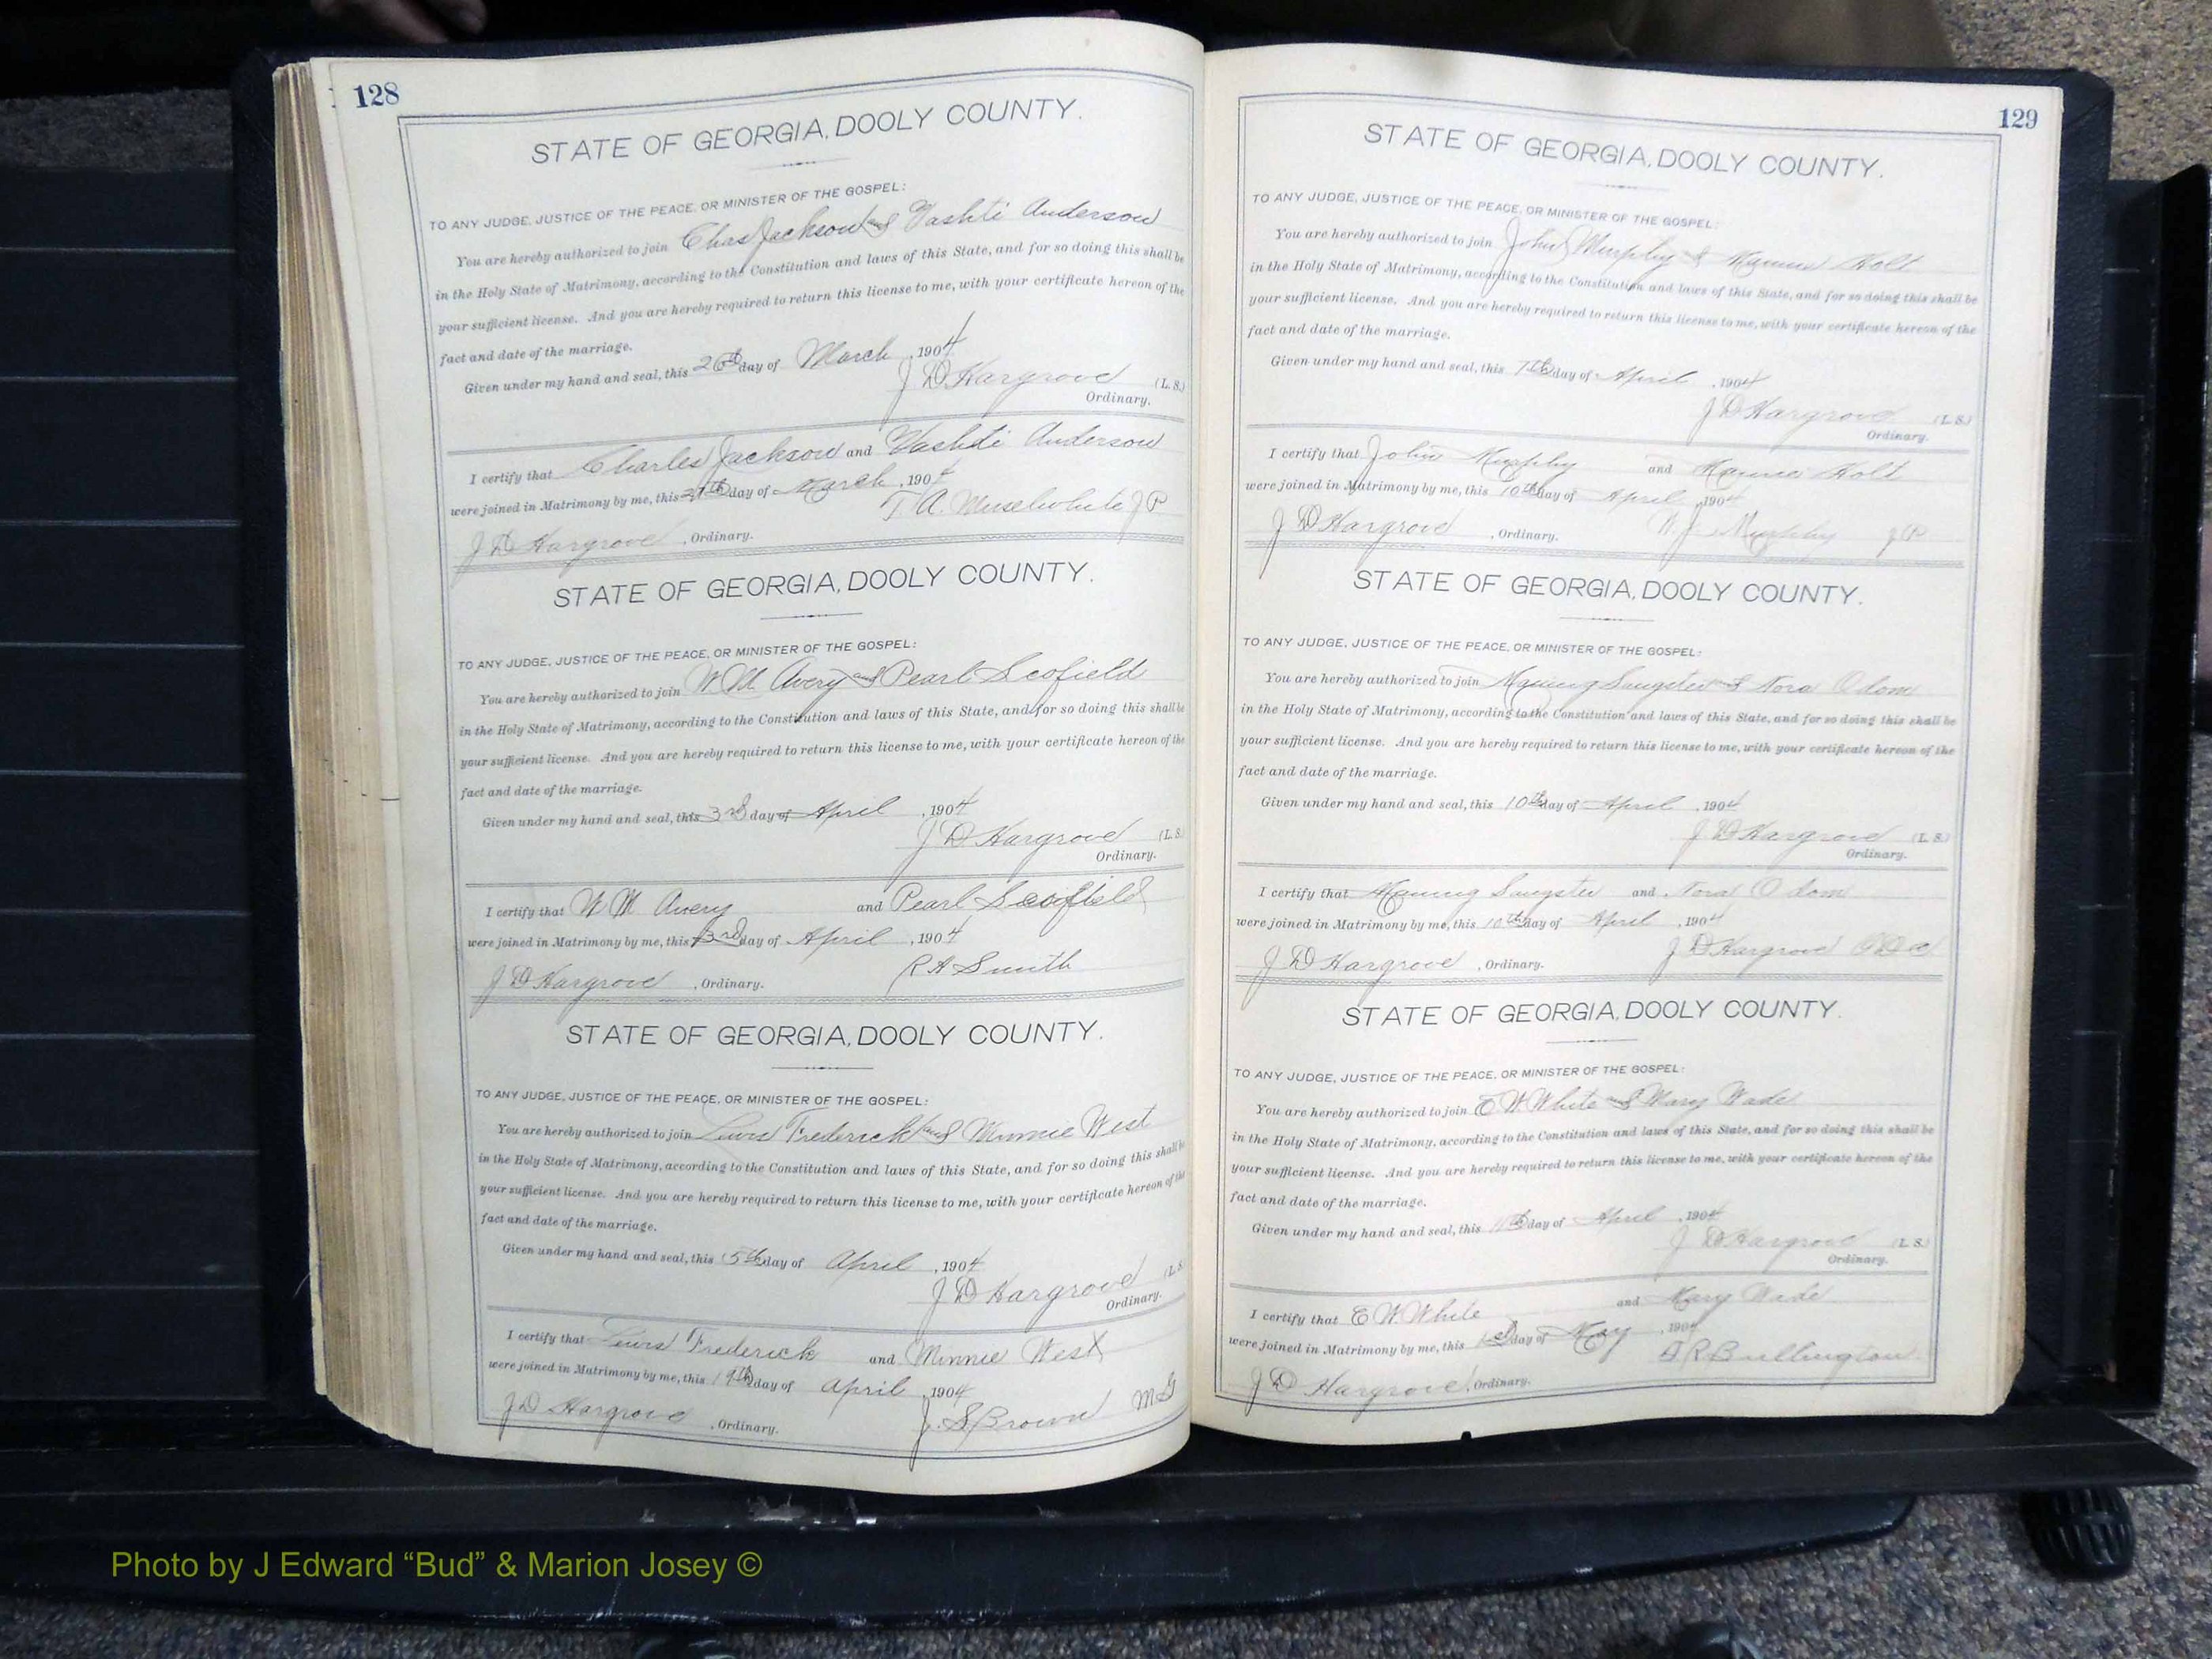 128
STATE OF GEORGIA, DOOLY COUNTY.
TO ANY JUDGE, JUSTICE OF THE PEACE, OR MINISTER OF THE GOSPEL:
You are hereby authorized to join Chas Jackson and Vashti Anderson
in the Holy State of Matrimony, according to the Constitution and laws of this State, and for so doing this shall be
your sufficient license. And you are hereby required to return this license to me, with your certificate hereon of the
fact and date of the marriage.
Given under my hand and seal, this 26th day of March, 1904
J D Hargrove (L. S.)
Ordinary.
I certify that Charles Jackson and Vashti Anderson
were joined in Matrimony by me, this day of March, 1904
T. A. Muselwhite J P
J D Hargrove, Ordinary.
STATE OF GEORGIA, DOOLY COUNTY.
TO ANY JUDGE, JUSTICE OF THE PEACE, OR MINISTER OF THE GOSPEL:
You are hereby authorized to join W M Avery and Pearl Scofield
in the Holy State of Matrimony, according to the Constitution and laws of this State, and for so doing this shall be
your sufficient license. And you are hereby required to return this license to me, with your certificate hereon of the
fact and date of the marriage.
Given under my hand and seal, this 3rd day of April, 1904
J D Hargrove (L. S.
Ordinary.
I certify that W M Avery and Pearl
were joined in Matrimony by me, this 3rd day of April, 1904
R A Smith
J D Hargrove, Ordinary.
STATE OF GEORGIA, DOOLY COUNTY.
TO ANY JUDGE, JUSTICE OF THE PEACE, OR MINISTER OF THE GOSPEL:
You are hereby authorized to join Lewis Frederick and Minnie West
in the Holy State of Matrimony, according to the Constitution and laws of this State, and for so doing this shall be
your sufficient license. And you are hereby required to return this license to me, with your certificate hereon of the
fact and date of the marriage.
Given under my hand and seal, this 5th day of April, 1904
J D Hargrove (L. S.
Ordinary.
I certify that Lewis Frederick and Minnie West
were joined in Matrimony by me, this day of April, 1904
J. S. Brown M G
J D Hargrove, Ordinary.
129
STATE OF GEORGIA, DOOLY COUNTY.
TO ANY JUDGE, JUSTICE OF THE PEACE, OR MINISTER OF THE GOSPEL:
You are hereby authorized to join John Murphy & Holt
in the Holy State of Matrimony, according to the Constitution and laws of this State, and for so doing this shall be
your sufficient license. And you are hereby required to return this license to me, with your certificate hereon of the
fact and date of the marriage.
Given under my hand and seal, this 7th day of April, 1904
J D Hargrove (L. S.)
Ordinary.
I certify that John Murphy and Holt
were joined in Matrimony by me, this 10th day of April, 1904
J. Murphy J P
J D Hargrove, Ordinary.
STATE OF GEORGIA, DOOLY COUNTY.
TO ANY JUDGE, JUSTICE OF THE PEACE, OR MINISTER OF THE GOSPEL:
You are hereby authorized to join Maning Sangster and Nora Odom
in the Holy State of Matrimony, according to the Constitution and laws of this State, and for so doing this shall be
your sufficient license. And you are hereby required to return this license to me, with your certificate hereon of the
fact and date of the marriage.
Given under my hand and seal, this 10th day of April, 1904
J D Hargrove (L. S.)
Ordinary.
I certify that Maning Sangster and Nora Odom
were joined in Matrimony by me, this 10th day of April, 1904
J D Hargrove
J D Hargrove, Ordinary.
STATE OF GEORGIA, DOOLY COUNTY.
TO ANY JUDGE, JUSTICE OF THE PEACE, OR MINISTER OF THE GOSPEL:
You are hereby authorized to join E W White and Mary Wade
in the Holy State of Matrimony, according to the Constitution and laws of this State, and for so doing this shall be
your sufficient license. And you are hereby required to return this license to me, with your certificate hereon of the
fact and date of the marriage.
Given under my hand and seal, this day of April, 1904
J D Hargrove (L. S.)
Ordinary.
I certify that E W White and Mary Wade
were joined in Matrimony by me, this day of May, 1904
Bullington
J D Hargrove, Ordinary.
Photo by J Edward “Bud” & Marion Josey ©